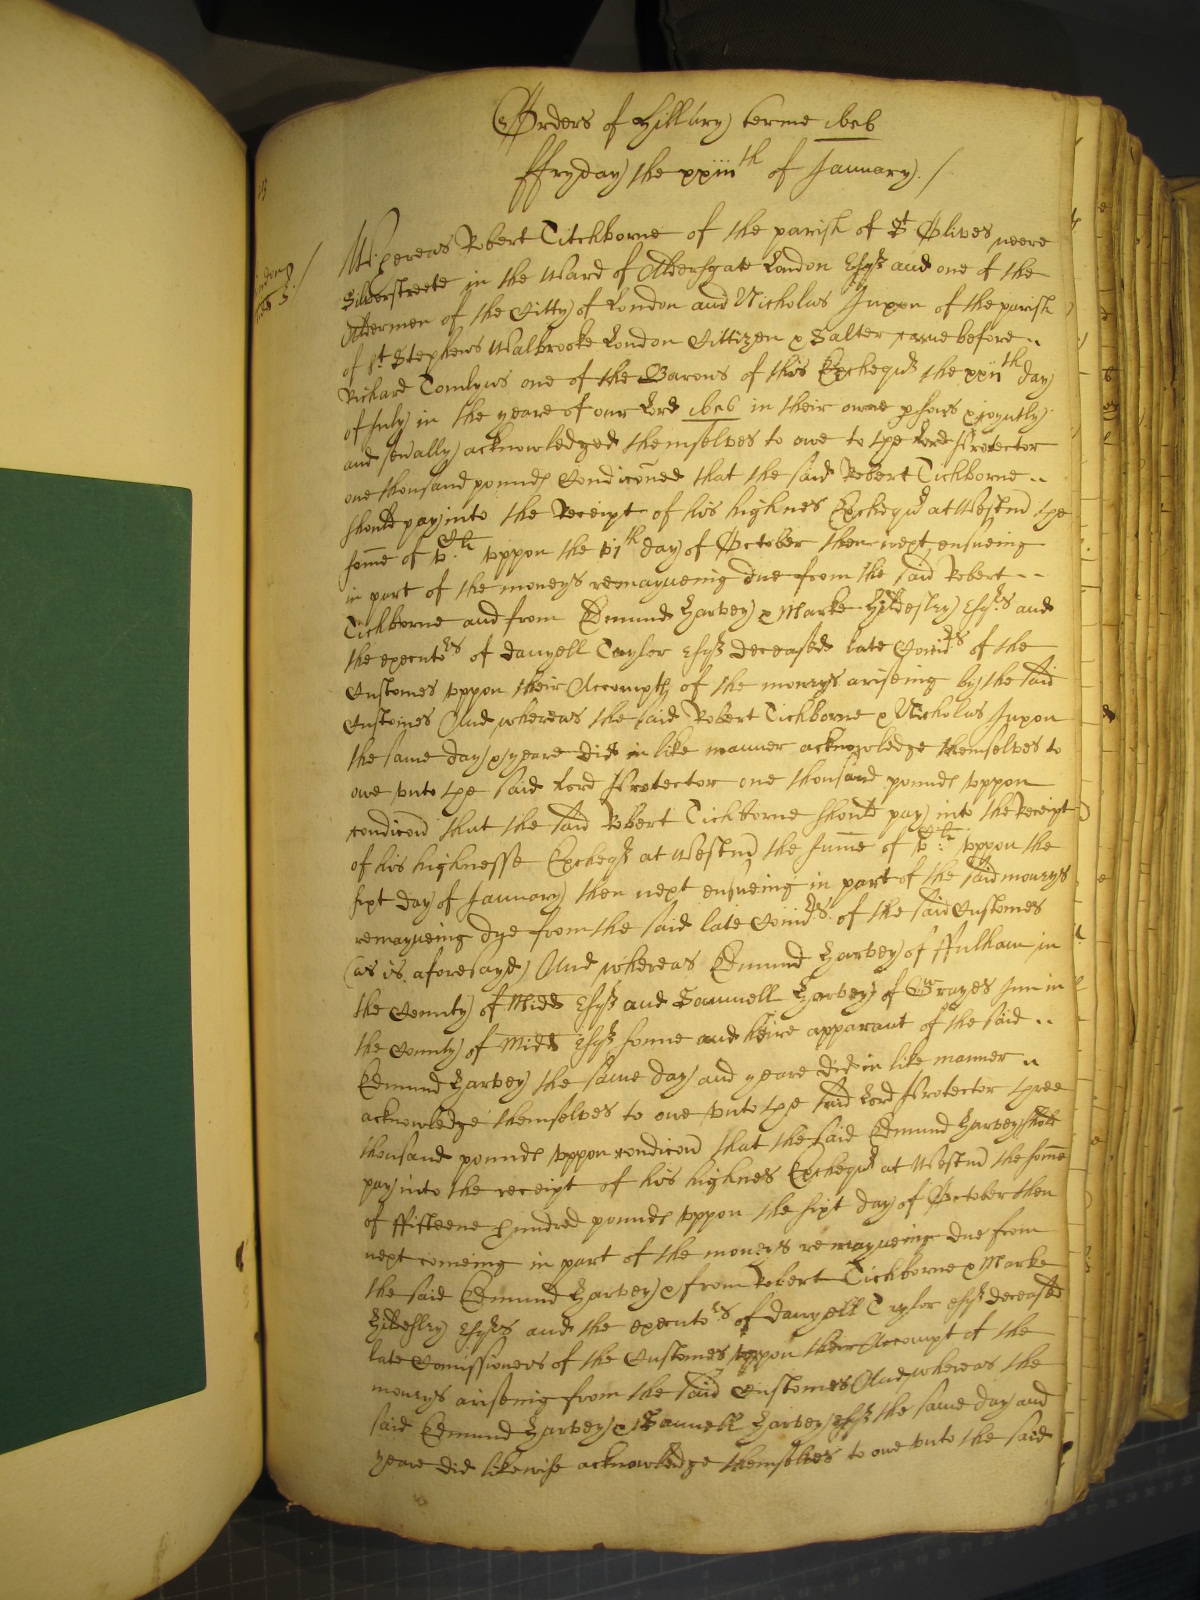 Orders of Hillary terme 1656
ffryday the xxiiith of January /
London
Whereas Robert Titchborne of the parish of St Olives neere
Silverstreete in the Ward of Aldersgate London Esqr and one of the
Aldermen of the Citty of London and Nicholas Juxon of the parish
of St Stephens Walbrooke London Cittizen & Salter came before
Richard Tomlyns one of the Barons of this Exchequer the xxiith day
of July in the yeare of our Lord 1656 in their owne psons & joyntly
and sevally acknowledged themselves to owe to the Lord Protector
one thousand pounds Condiconed that the said Robert Tichborne
should pay into the Receipt of his highnes Exchequer at Westmr the
some of vC li uppon the vith day of October then next ensueing
in part of the moneys remayneing due from the said Robert
Tichborne and from Edmund Harvey & Marke Hildesley Esqrs and
the executors of Danyell Taylor Esqr deceased late Comrs of the
Customes uppon their Accompts of the moneys ariseing by the said
Customes And whereas the said Robert Tichborne & Nicholas Juxon
the same day & yeare did in like manner acknowledge themselves to
owe unto the said Lord Protector one thousand pounds uppon
condicon that the said Robert Tichborne should pay into the Receipt
of his highnesse Excheqr at Westmr the sume of vC li uppon the
sixt day of January then next ensueing in part of the said moneys
remayneing dye from the said late Comrs of the said Customes
(as is aforesayd) And whereas Edmund Harvey of ffulham in
the County of Midd Esqr and Samuell Harvey of Grayes Inn in
the County of Midd Esqr sonne and heire apparant of the said
Edmund Harvey the same day and yeare did in like manner
acknowledge themselves to owe unto the said Lord Protector three
thousand pounds uppon condicon that the said Edmund Harvey should
pay into the receipt of his highnes Exchequer at Westmr the some
of ffifteene hundred pounds uppon the sixt day of October then
next comeing in part of the moneys remayneing due from
the said Edmund Harvey & from Robert Tichborne & Marke
Hildesley Esqrs and the executors of Danyell Taylor esqr deceased
late Comissioners of the Customes uppon their Accompt of the
moneys ariseing from the said Customes And whereas the
said Edmund Harvey & Samuell Harvey esqr the same day and
yeare did likewise acknowledge themselves to owe unto the said